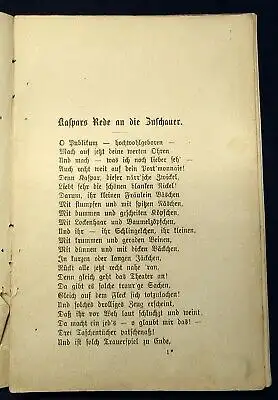 Kaspars Rede an die Zuschauer.
O Publikum — hochwohlgeboren —
Mach auf jetzt deine werten Ohren
Und mach — was ich noch lieber seh' —
Auch recht weit auf dein Port'monnaie!
Denn Kaspar, dieser närr'sche Zwickel,
Liebt sehr die schönen blanken Nickel!
Darum, ihr kleinen Fräulein Bäschen
Mit stumpfen und mit spitzen Näschen,
Mit dummen und gescheiten Köpfchen,
Mit Lockenhaar und Baumelzöpfchen,
Und ihr — ihr Schlingelchen, ihr kleinen,
Mit krummen und geraden Beinen,
Mit dünnen und mit dicken Bäckchen,
In kurzen oder langen Jäckchen,
Rückt alle jetzt recht nahe 'ran,
Denn gleich geht das Theater an!
Da gibt es solche traur'ge Sachen,
Gleich auf dem Fleck sich totzulachen!
Und solches drolliges Zeug erscheint,
Daß ihr vor Weh laut schluchzt und weint.
Da macht ein jed's — o glaubt mir das! —
Drei Taschentücher patschenaß!
Und ist solch Trauerspiel zu Ende,
1*